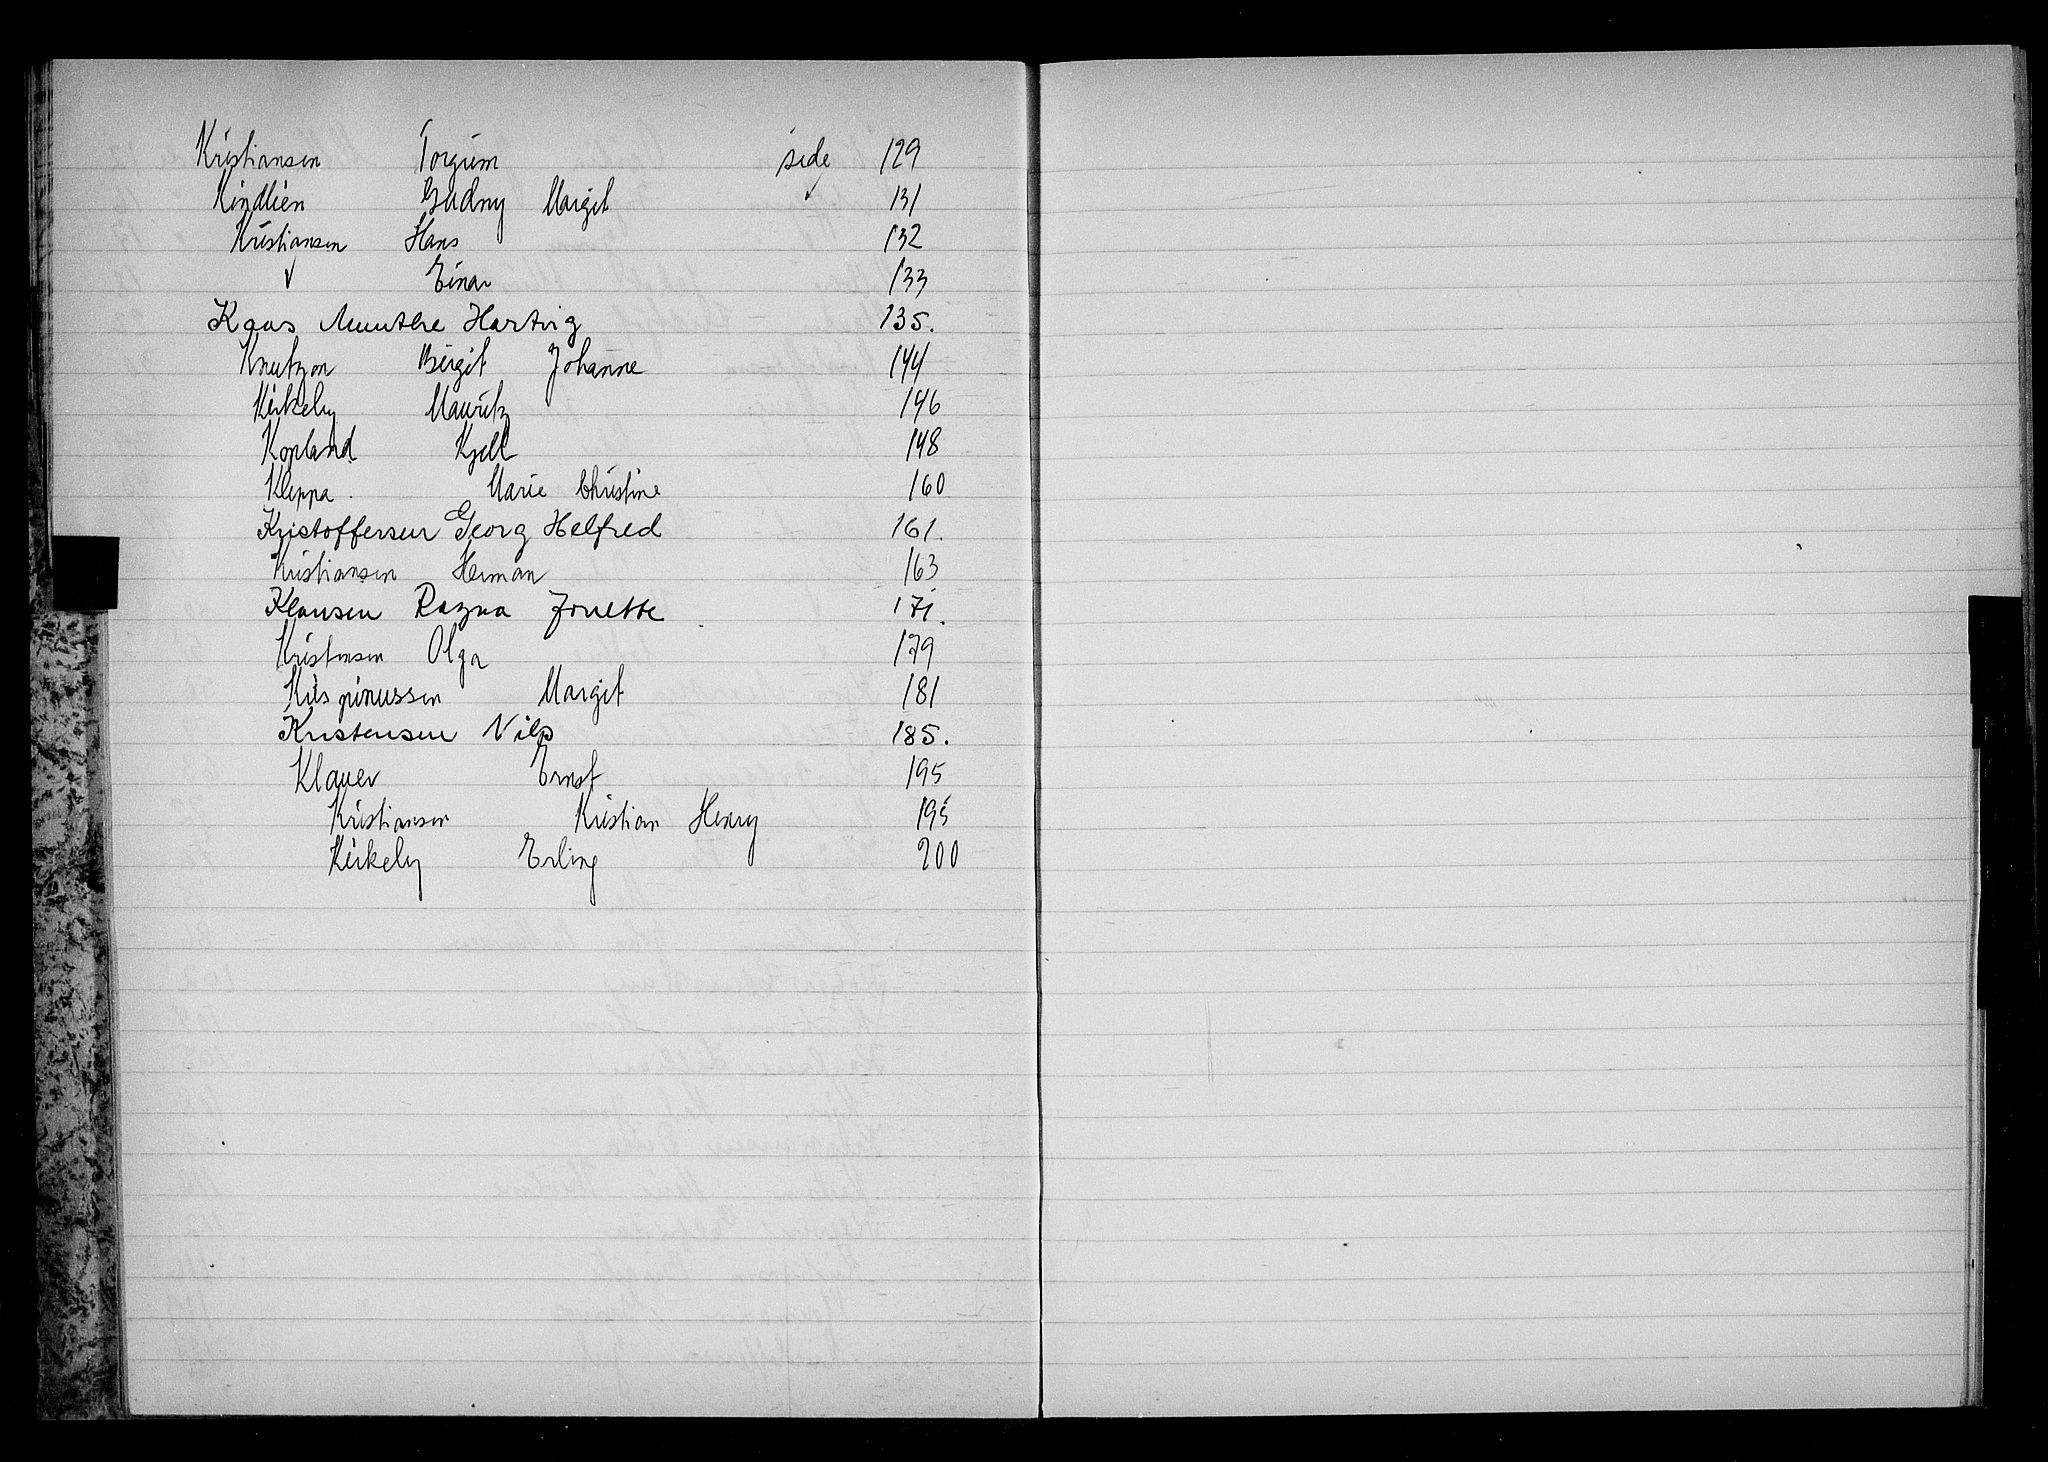 Kristiansen Torgrim side 129
Kindlien Gudny Margit ✓ 131
Kristiansen Hans 132
✓ Einar 133
Kaas Munthe Hartvig 135.
Knutzon Birgit Johanne 144
Kirkeby Mauritz 146
Kopland Kjell 148
Kleppa. Marie Christine 160
Kristoffersen Georg Helfred 161.
Kristiansen Herman 163
Klausen Ragna Jonette 171.
Kristensen Olga 179
Margit 181
Kristensen Nils 185.
Klauer Ernst 195
Kristiansen Kristian Henry 195
Kirkeby Erling 200